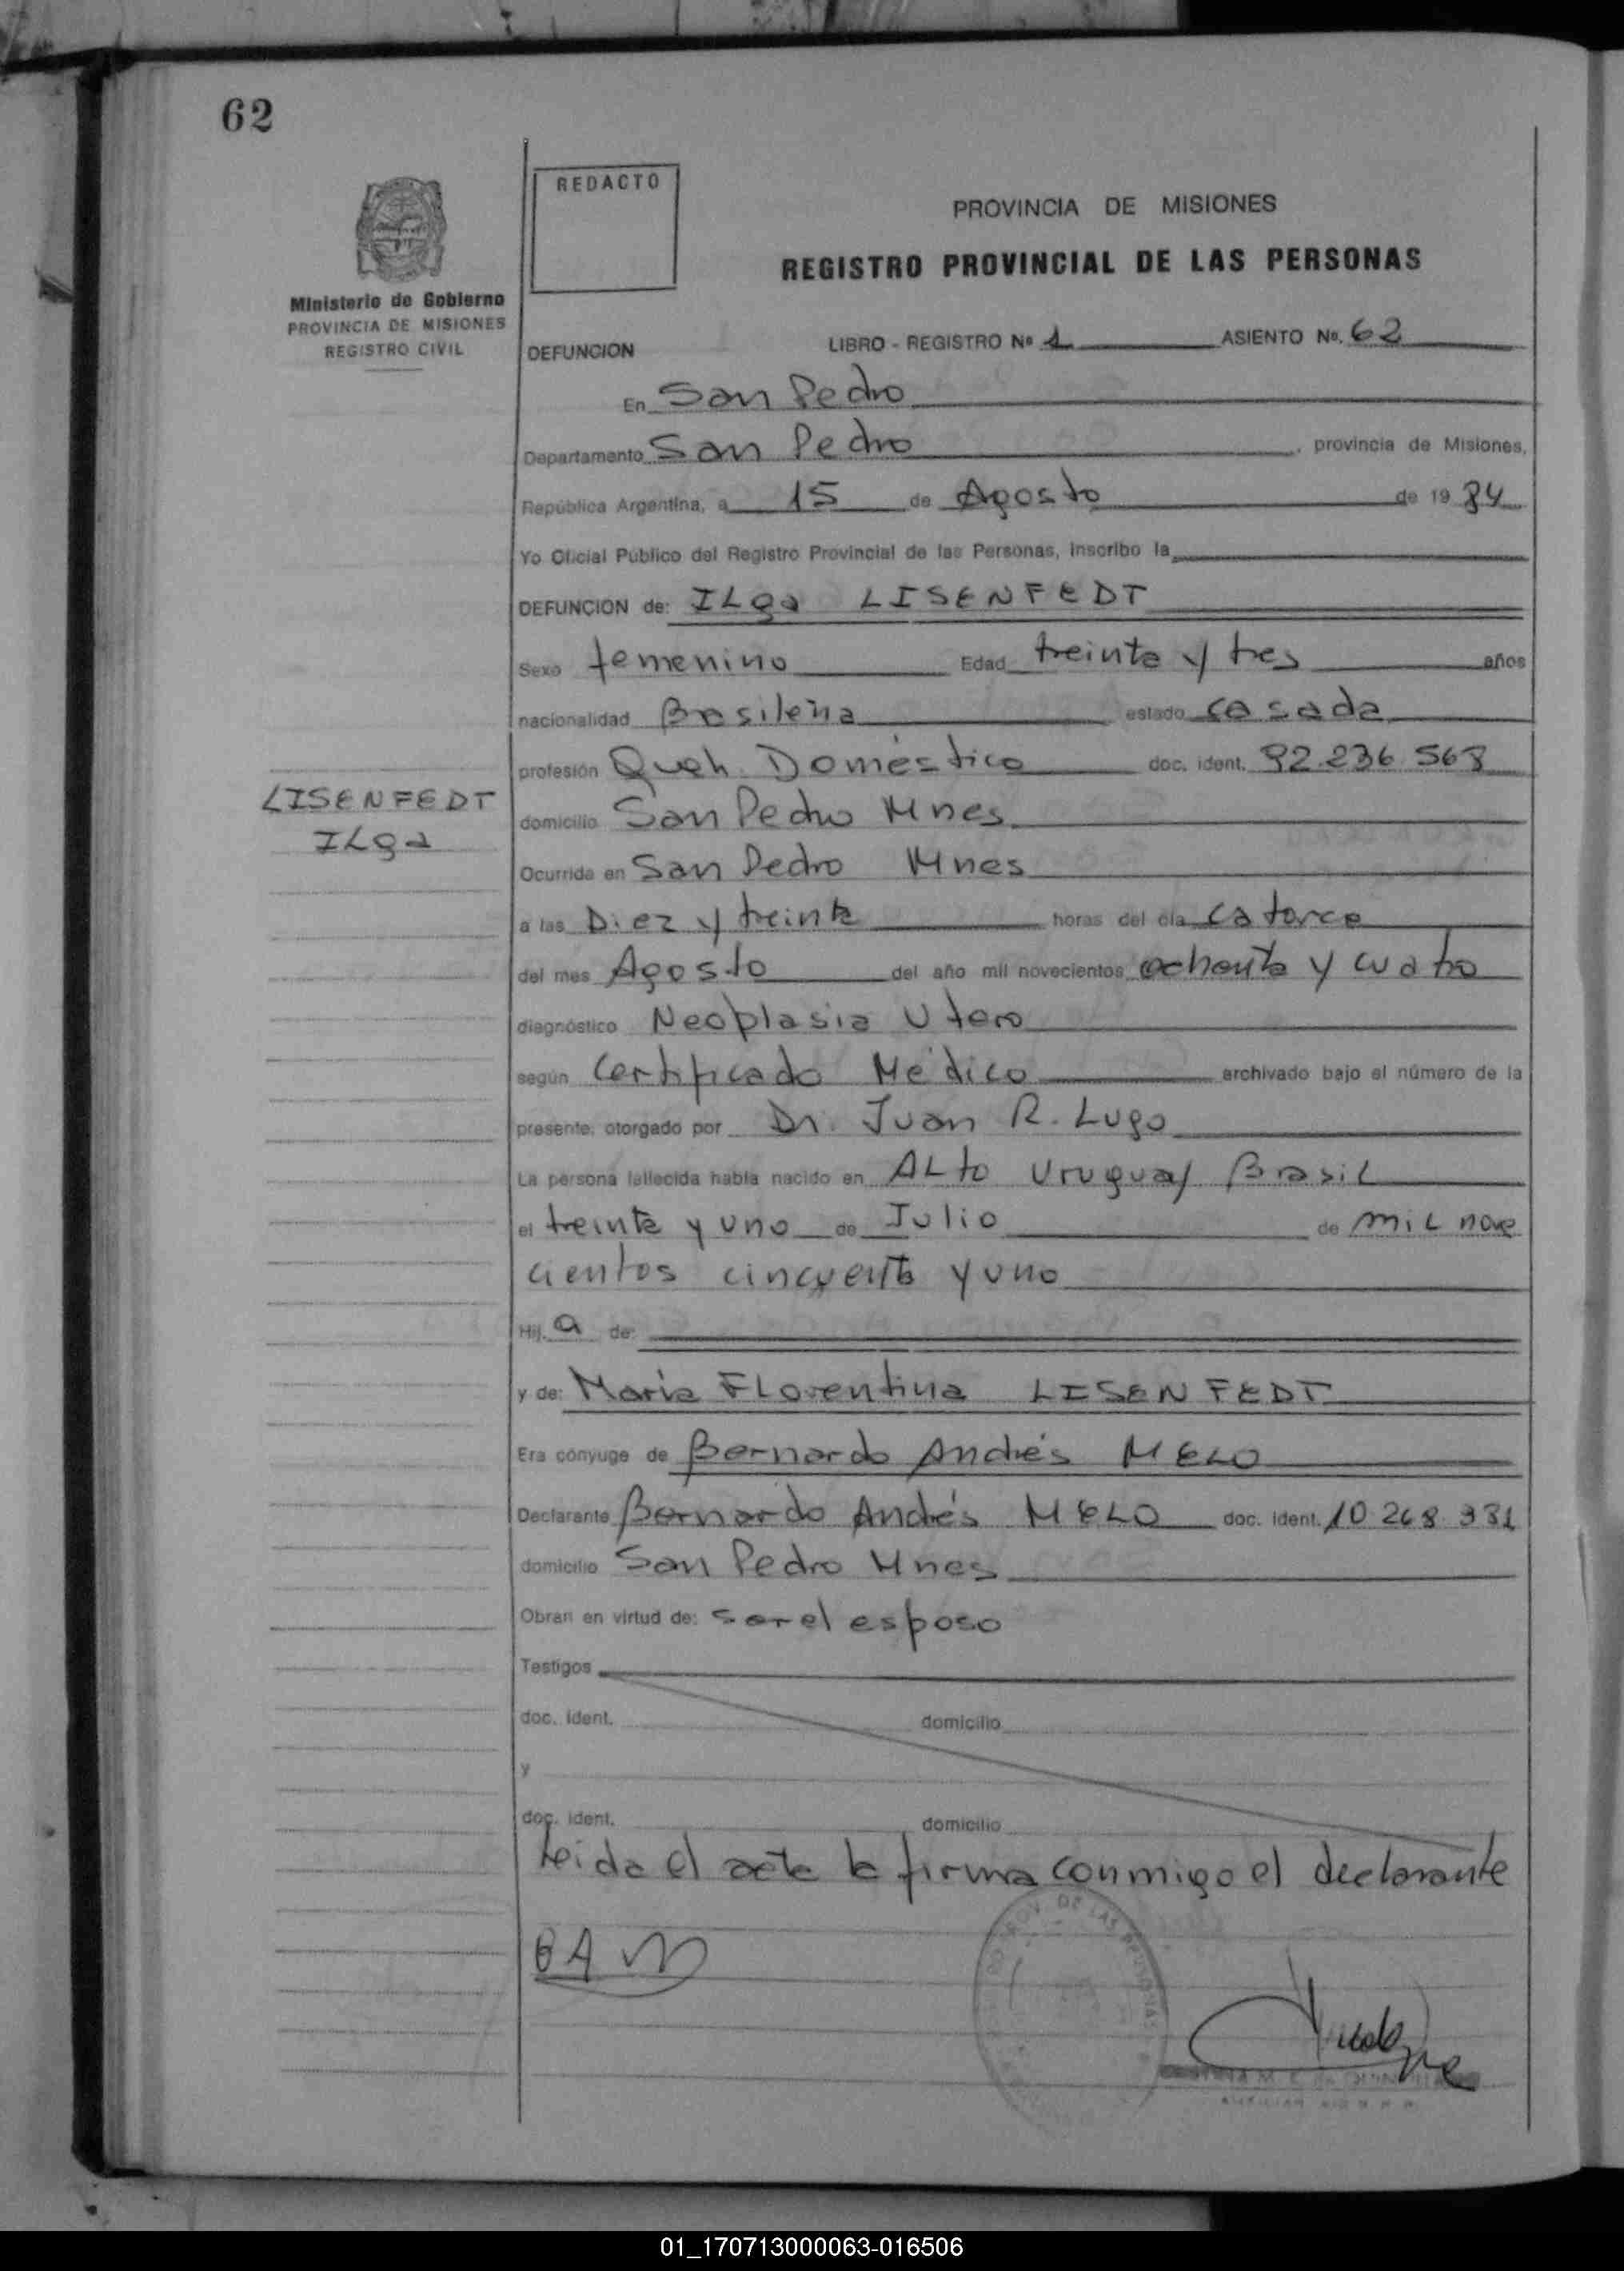 62
REDACTO
PROVINCIA DE MISIONES
REGISTRO PROVINCIAL DE LAS PERSONAS
Ministerio de Gobierno
PROVINCIA DE MISIONES
REGISTRO CIVIL
DEFUNCION LIBRO - REGISTRO Nº 1 ASIENTO Nº. 62
En San Pedro
Departamento San Pedro, provincia de Misiones,
República Argentina, a 15 de Agosto de 1984
Yo Oficial Público del Registro Provincial de las Personas, inscribo la
DEFUNCION de: ILga LISENFEDT
Sexo femenino Edad treinta y tres años
nacionalidad Brasileña estado casada
profesión Queh. Doméstico doc. ident. 92.236.568
LISENFEDT
ILga
domicilio San Pedro Mnes
Ocurrida en San Pedro Mnes
a las Diez y treinta horas del día catorce
del mes Agosto del año mil novecientos ochenta y cuatro
diagnóstico Neoplasia Utero
según Certificado Médico archivado bajo el número de la
presente, otorgado por Dr. Juan R. Lugo
La persona fallecida había nacido en ALto Uruguay Brasil
el treinta y uno de Julio de mil nove
cientos cincuenta y uno
Hij.a de:
y de: María FLorentina LISENFEDT
Era cónyuge de Bernardo Andrés MELO
Declarante Bernardo Andrés MELO doc. ident. 10.268.931
domicilio San Pedro Mnes
Obran en virtud de: ser el esposo
Testigos
doc. ident. domicilio
y
doc. ident. domicilio
Leida el acta la firma conmigo el declarante
BAM
DE LAS
01_170713000063-016506